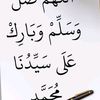 اللهم صل
وَسَلِّمْ وَبَارِكْ
عَلَى سَيِّدُنَا
مُحَمَّد